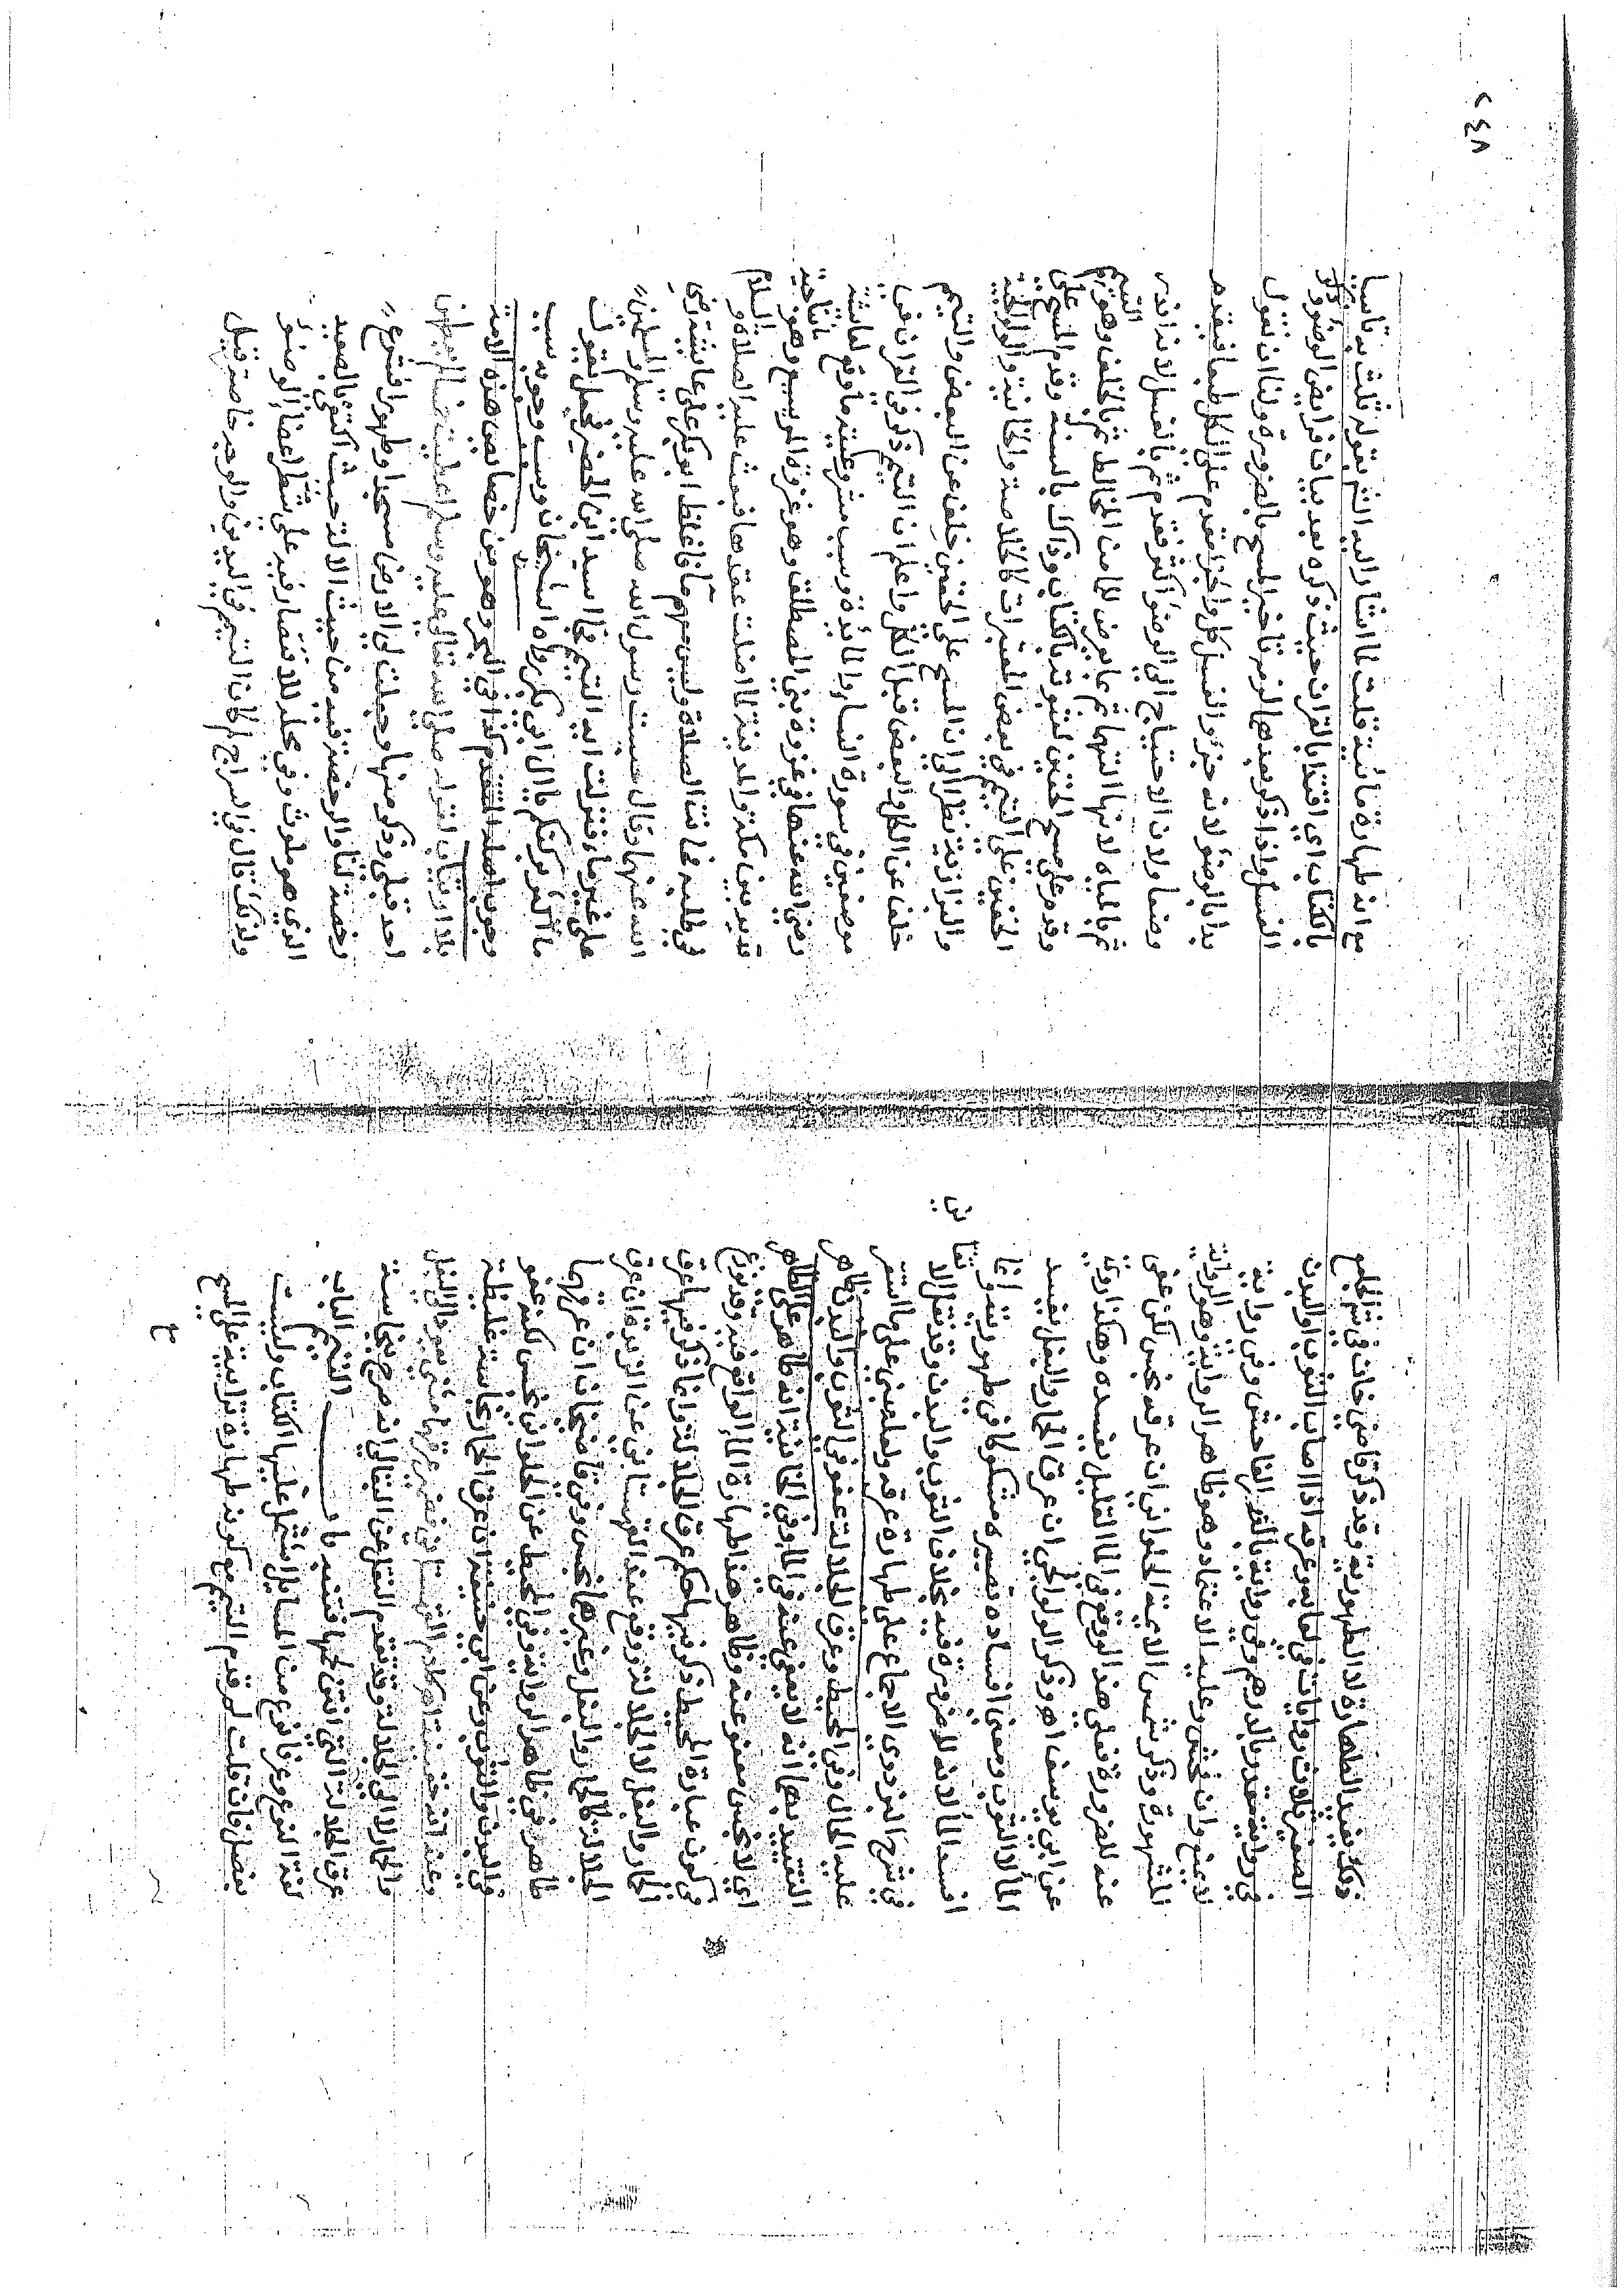 ذلك يفيد الطهارة لا الطهورية وقد ذكر قاضي خان في شرح الجامع
الصغير ثلاث روايات في لعابه وعرقه اذا اصاب الثوب او البدن
في رواية مقدر بالدرهم وفي رواية بالكثير الفاحش وفي رواية
لا يمنع وان فحش وعليه الاعتماد وهو ظاهر الرواية وهو الرواية
المشهورة وذكر شمس الايمة الحلواني ان عرقه نجس لكن عفي
عنه للضرورة فعلى هذا لو وقع في الماء القليل يفسده وهكذا روي
عن ابي يوسف اهـ وذكر الولوالجي ان عرق الحمار والبغل يفسد
الماء لا الثوب ومعنى افساده تصيره مشكوكا في طهوريته وانما
افسد الماء لانه لا ضرورة فيه بخلاف الثوب والبدن وقد نقل
في شرح البزدوي الاجماع على طهارة عرقه على ما استقر
عليه الحال وفي المحيط وعرق الجلالة عفو في الثوب والبدن ظاهر
التقييد بهما انه لا يعفى عنه في الماء وفي الخانية انه طاهر على الظاهر
اي لا نجس معفو عنه وظاهر هذا طهارة الماء الواقع فيه وقد نوزع
في كون عبارة المحيط ذكر فيها حكم عرق الجلالة وانما ذكر فيها عرق
الحمار والبغل لا الجلالة ووقع عند القهستاني عن ان عرق
الجلالة كالحمار والبغل وغيرهما نجس وفي قاضيخان ان عرقها
طاهر في ظاهر الرواية وفي المحيط عن الحلواني نجس لكنه عفو
في البدن والثوب وعن ابي حنيفة ان عرق الحمار نجاسة غليظة
وعنه انه خفيفة اهـ كلام القهستاني فضمير عرقها مثنى يعود الى البغل
والحمار لا الى الجلالة وقد تقدم النقل عن البقالي انه صرح بنجاسة
عرق الجلالة التي انتن لحمها فتنبه باب التيمم الباب
لغة النوع وعرفا نوع من المسايل اشتمل عليها الكتاب وليست
بفصل فان قلت لم قدم التيمم مع كونه طهارة ترابية على المسح
٢٤٨
مع انه طهارة مائية قلت لما اشار اليه الشم بقوله ثلث به تاسيا
بالكتاب اي اقتداء بالقران حيث ذكره بعد بيان فرايض الوضوء وذكر
الغسل واذا ذكر بعدهما لزم تاخير المسح بالضرورة ولنا ان نقول
بدا بالوضوء لانه جزء والغسل كل والجزء مقدم على الكل طبعا فيقدم
وضعا ولان الاحتياج الى الوضوء اكثر فقدم ثم بالغسل لانه اندر
ثم بالمياه لانها التهما ثم بما يعرض لها من المخالط ثم بالخلف وهو التيمم
وقدم على مسح الخفين لثبوته بالكتاب وذاك بالسنة وقدم المسح على
الخفين على التيمم في بعض المعتبرات كالخلاصة والخانية والولوالجية
والبزازية نظرا الى ان المسح على الخفين خلف عن البعض والتيمم
خلف عن الكل والبعض قبل الكل واعلم ان التيمم ذكر في القران في
موضعين في سورة النساء والمايدة وسبب مشروعيته ما وقع لعايشة
رضي الله عنها في غزوة بني المصطلق وهو غزوة المريسيع وهو بناحية
قديد بين مكة والمدينة لما اضلت عقدها فبعث عليه الصلاة والسلام
في طلبه فحانت الصلاة وليس معهم ماء فاغلظ ابو بكر على عايشة رضي
الله عنها وقال حبست رسول الله صلى الله عليه وسلم والمسلمين
على غير ماء فنزلت اية التيمم فجاء اسيد ابن الحضير فجعل يقول
ما اكثر بركتكم يا ال ابي بكر رواه الشيخان وسبب وجوبه سبب
وجوب اصله المتقدم كذا في البحر وهو من خصايص هذه الامة
بلا ارتياب لقوله صلى الله تعالى عليه وسلم اعطيت خمسا لم يعطهن
احد قبلي وذكر منها وجعلت لي الارض مسجدا وطهورا فشرع
رخصة لنا والرخصة فيه من حيث الالة حيث اكتفي بالصعيد
الذي هو ملوث وفي محله للاقتصار فيه على شطر اعضاء الوضوء
ولذلك قال في السراج اركان التيمم في اليدين والوجه خاصة قيل